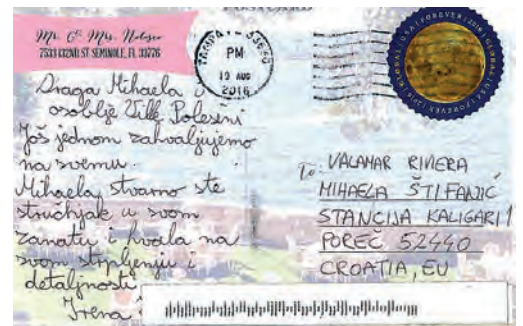 POSTCARD
Mr. & Mrs. Nelson
7533 132ND ST SEMINOLE, FL 33776
TAMPA FL 336
PM
19 AUG
2016
GLOBAL USA FOREVER 2016 GLOBAL USA FOREVER 2016
Draga Mihaela i
osoblje Ville Polesini
Još jednom zahvaljujemo
na svemu.
Mihaela, stvarno ste
stručnjak u svom
zanatu i hvala na
svom strpljenju i
detaljnosti
Irena
To: VALAMAR RIVIERA
MIHAELA ŠTIFANIĆ
STANCIJA KALIGARI 1
POREČ 52440
CROATIA, EU